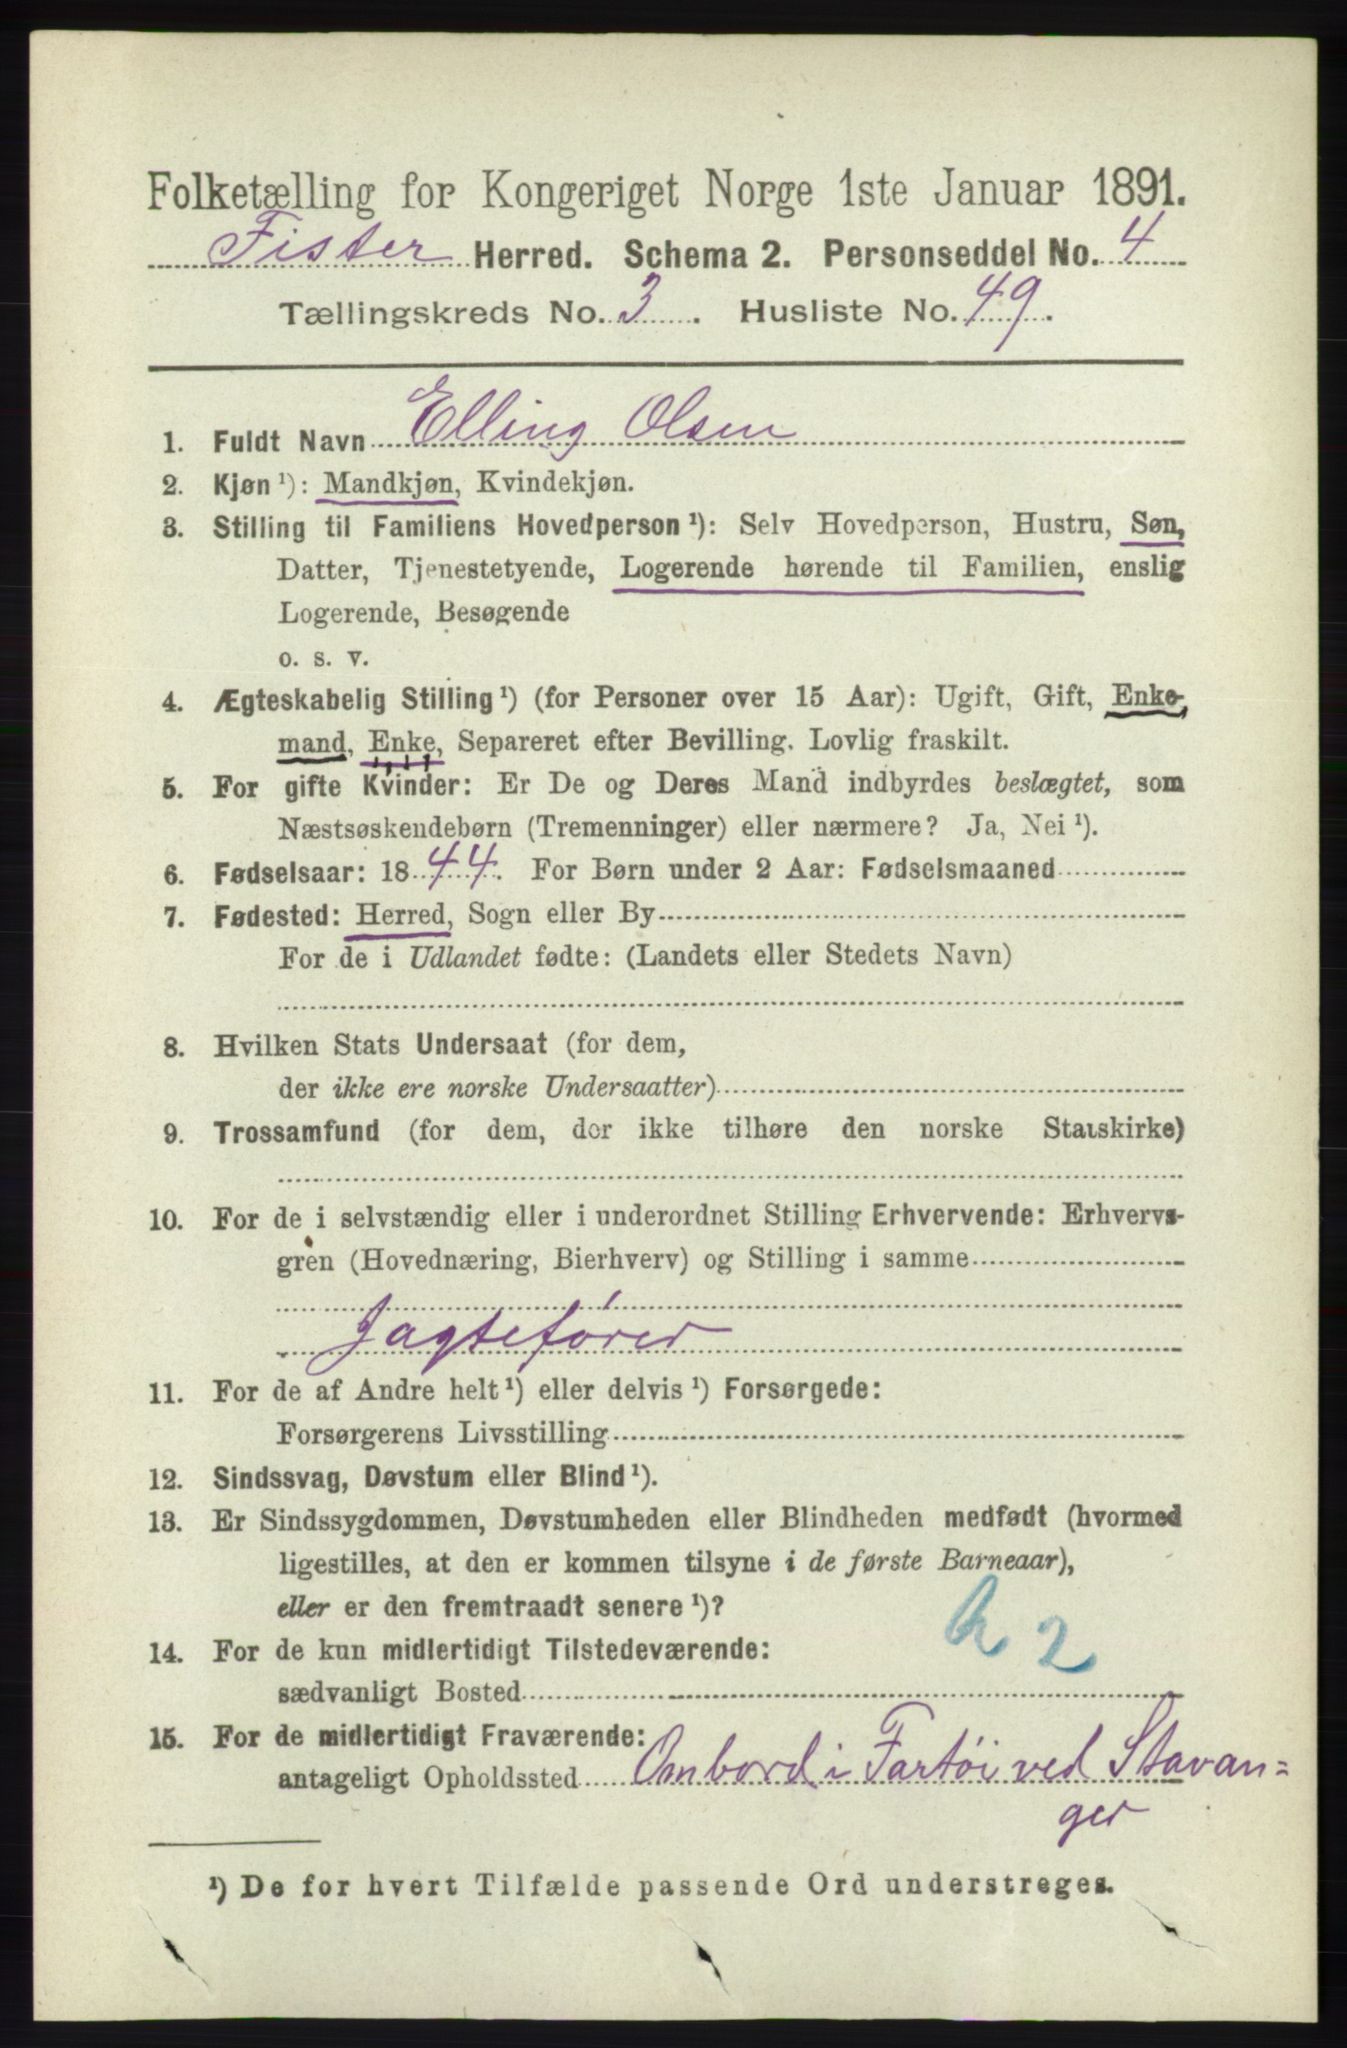 Folketælling for Kongeriget Norge 1ste Januar 1891.
Fister Herred. Schema 2. Personseddel No. 4
Tællingskreds No. 3. Husliste No. 49.
1. Fuldt Navn Elling Olsen
2. Kjøn ¹): Mandkjøn, Kvindekjøn.
3. Stilling til Familiens Hovedperson ¹): Selv Hovedperson, Hustru, Søn,
Datter, Tjenestetyende, Logerende hørende til Familien, enslig
Logerende, Besøgende
o. s. v.
4. Ægteskabelig Stilling ¹) (for Personer over 15 Aar): Ugift, Gift, Enke-
mand, Enke, Separeret efter Bevilling. Lovlig fraskilt.
5. For gifte Kvinder: Er De og Deres Mand indbyrdes beslægtet, som
Næstsøskendebørn (Tremenninger) eller nærmere? Ja, Nei ¹).
6. Fødselsaar: 1844. For Børn under 2 Aar: Fødselsmaaned
7. Fødested: Herred, Sogn eller By
For de i Udlandet fødte: (Landets eller Stedets Navn)
8. Hvilken Stats Undersaat (for dem,
der ikke ere norske Undersaatter)
9. Trossamfund (for dem, der ikke tilhøre den norske Statskirke)
10. For de i selvstændig eller i underordnet Stilling Erhvervende: Erhvervs-
gren (Hovednæring, Bierhverv) og Stilling i samme
Jagtefører
11. For de af Andre helt ¹) eller delvis ¹) Forsørgede:
Forsørgerens Livsstilling
12. Sindssvag, Døvstum eller Blind ¹).
13. Er Sindssygdommen, Døvstumheden eller Blindheden medfødt (hvormed
ligestilles, at den er kommen tilsyne i de første Barneaar),
eller er den fremtraadt senere ¹)?
14. For de kun midlertidigt Tilstedeværende:
sædvanligt Bosted
15. For de midlertidigt Fraværende:
antageligt Opholdssted Ombord i Fartøi ved Stavan=
ger
¹) De for hvert Tilfælde passende Ord understreges.